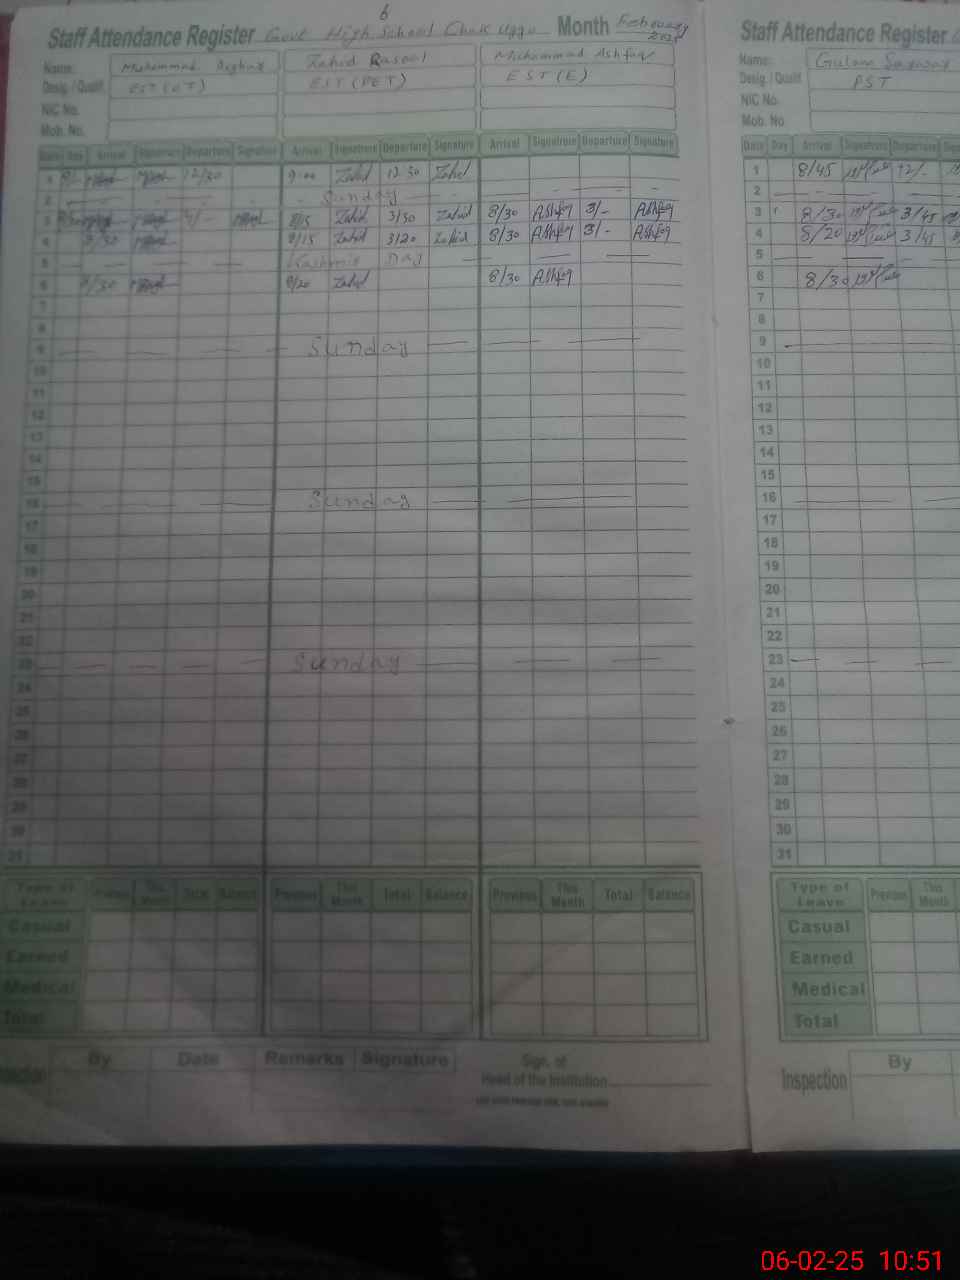 6
Staff Attendance Register Govt High School Chak Uggu Month February 2025
Name: Muhammad Asghar Zahid Rasool Muhammad Ashfaq
Desig. / Qualif. EST (OT) EST (PET) EST (E)
NIC No.
Mob. No.
Date Day Arrival Signature Departure Signature Arrival Signature Departure Signature Arrival Signature Departure Signature
1 12/30 9:00 Zahid 12 30 Zahid
2 Sunday
3 8/15 Zahid 3/30 Zahid 8/30 Ashfaq 3/- Ashfaq
4 8/30 8/15 Zahid 3/20 Zahid 8/30 Ashfaq 3/- Ashfaq
5 Kashmir Day
6 8/30 8/20 Zahid 8/30 Ashfaq
7
8
9 Sunday
10
11
12
13
14
15
16 Sunday
17
18
19
20
21
22
23 Sunday
24
25
26
27
28
29
30
31
Type of Leave Previous This Month Total Balance Previous This Month Total Balance Previous This Month Total Balance
Casual
Earned
Medical
Total
By Date Remarks Signature Sign. of
Head of the Institution
Staff Attendance Register
Name: Gulam Sarwar
Desig. / Qualif. PST
NIC No.
Mob. No.
Date Day Arrival Signature Departure
1 8/45 12/-
2
3 8/30 3/45
4 8/20 3/45
5
6 8/30
7
8
9
10
11
12
13
14
15
16
17
18
19
20
21
22
23
24
25
26
27
28
29
30
31
Type of Leave Previous This Month
Casual
Earned
Medical
Total
Inspection By
06-02-25 10:51